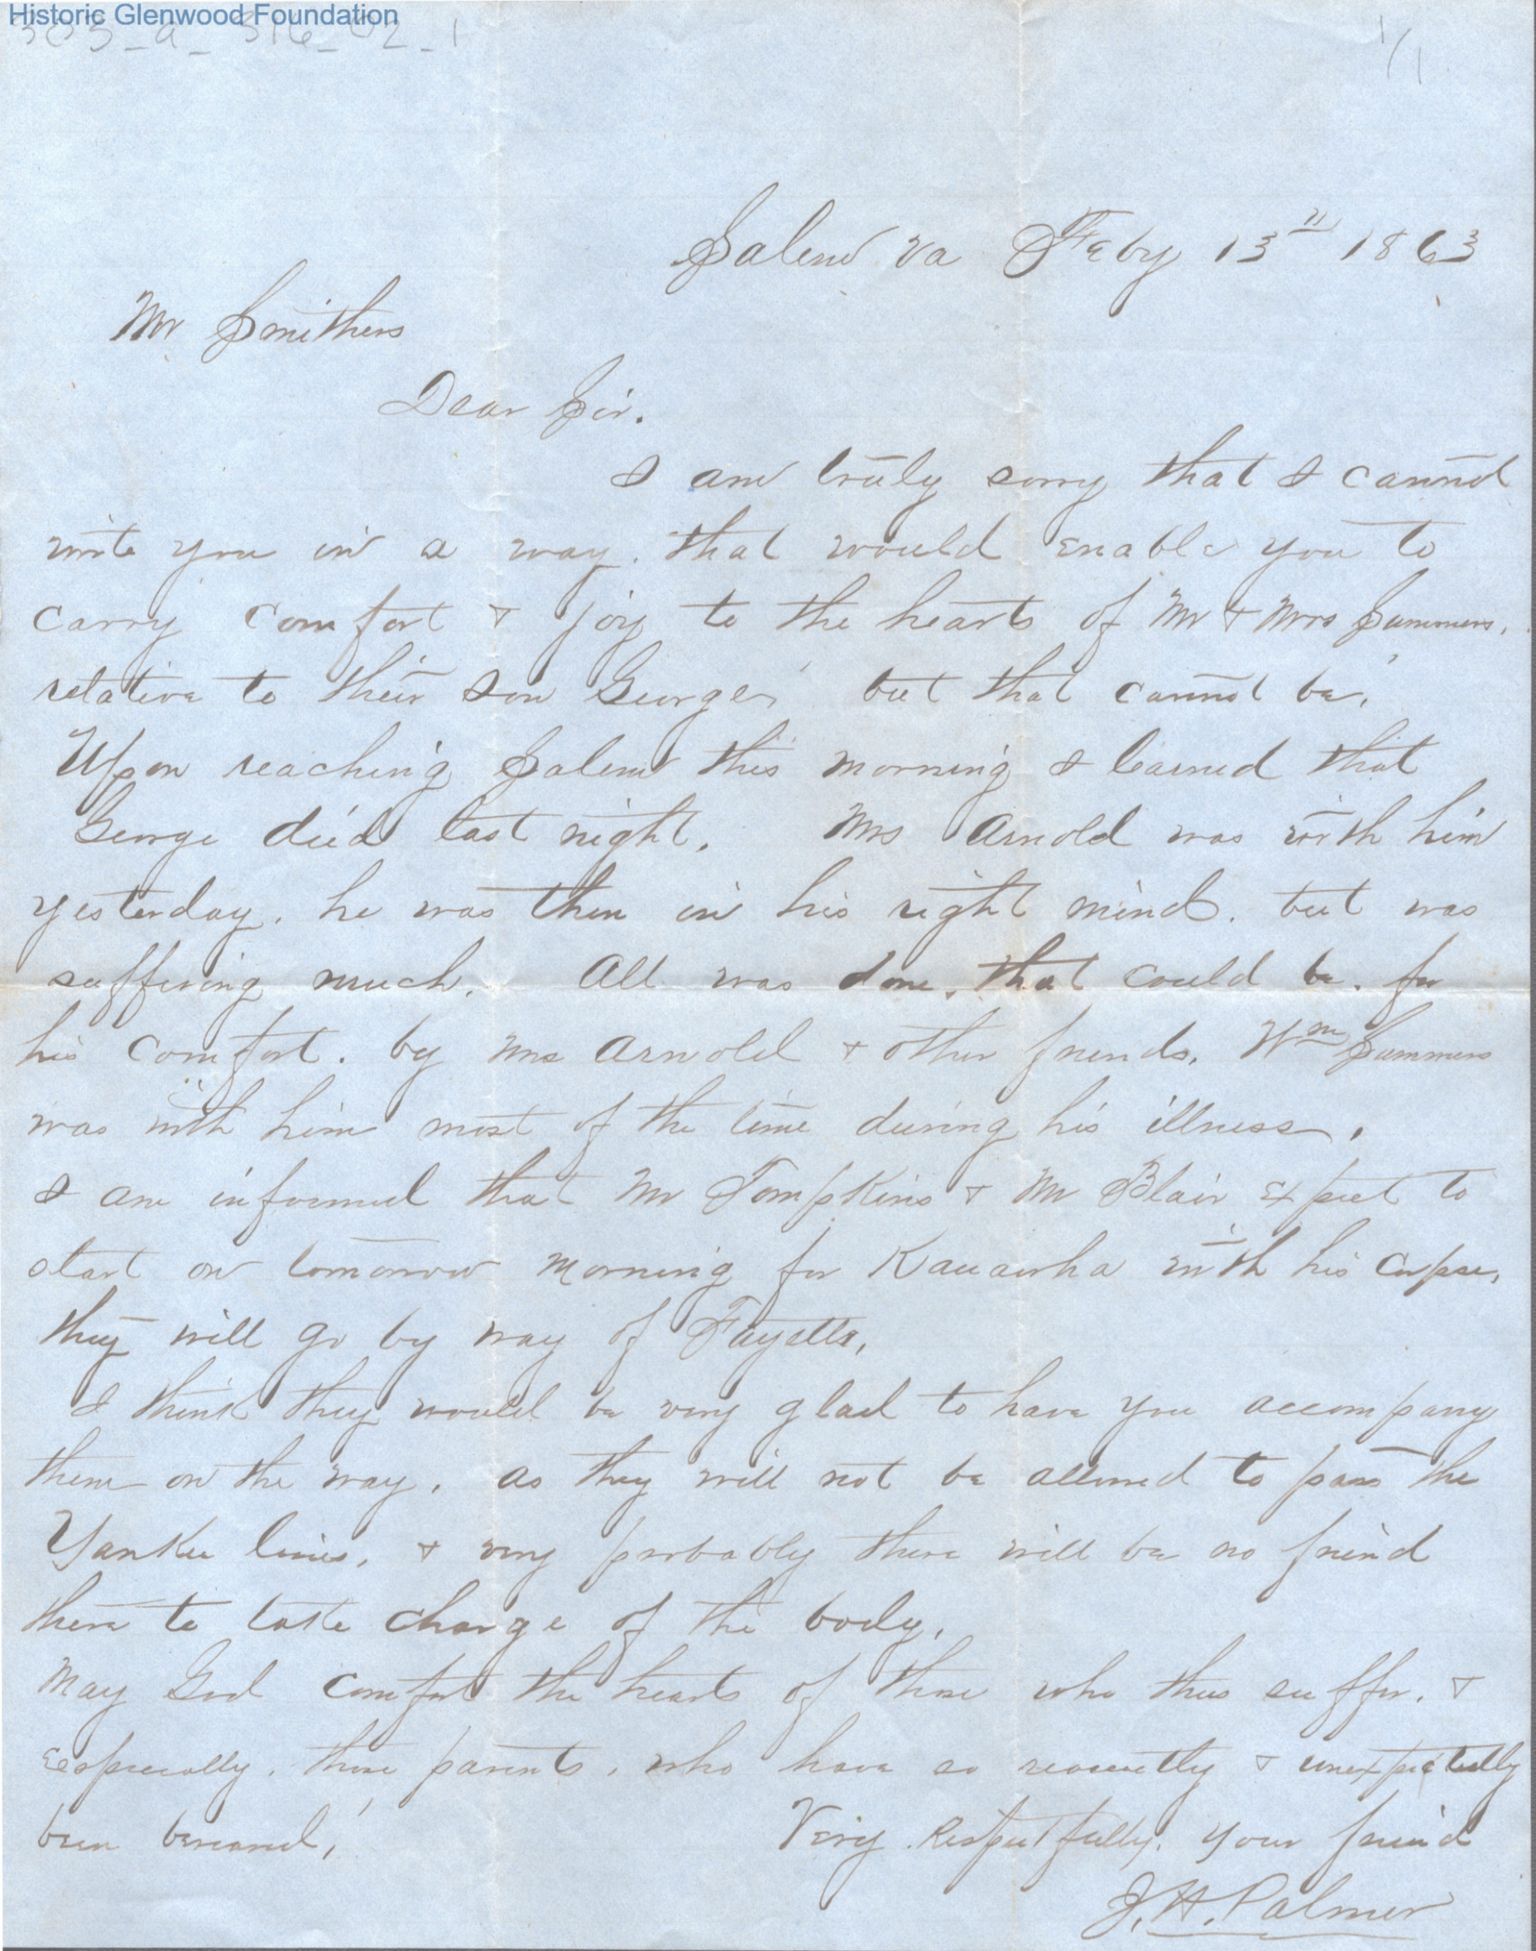 Historic Glenwood Foundation
303_a_316_02_1
1/1
Salem Va Feby 13" 1863
Mr Smithers
Dear Sir.
I am truly sorry that I cannot
write you in a way. that would enable you to
carry comfort & joy to the hearts of Mr & Mrs Summers,
relative to their son George, but that cannot be,
Upon reaching Salem this morning I learned that
George died last night. Mrs Arnold was with him
yesterday. he was then in his right mind. but was
suffering much. All was done, that could be. for
his comfort. by Mrs Arnold & other friends. Wm Summers
was with him most of the time during his illness.
I am informed that Mr Tompkins & Mr Blair expect to
start on tomorrow morning for Kanawha with his corpse,
they will go by way of Fayette,
I think they would be very glad to have you accompany
them on the way. as they will not be allowed to pass the
Yankee lines, & very probably there will be no friend
there to take charge of the body.
May God comfort the hearts of those who thus suffer. &
especially. those parents. who have so recently & unexpectedly
been bereaved,
Very Respectfully. your friend
J. H. Palmer